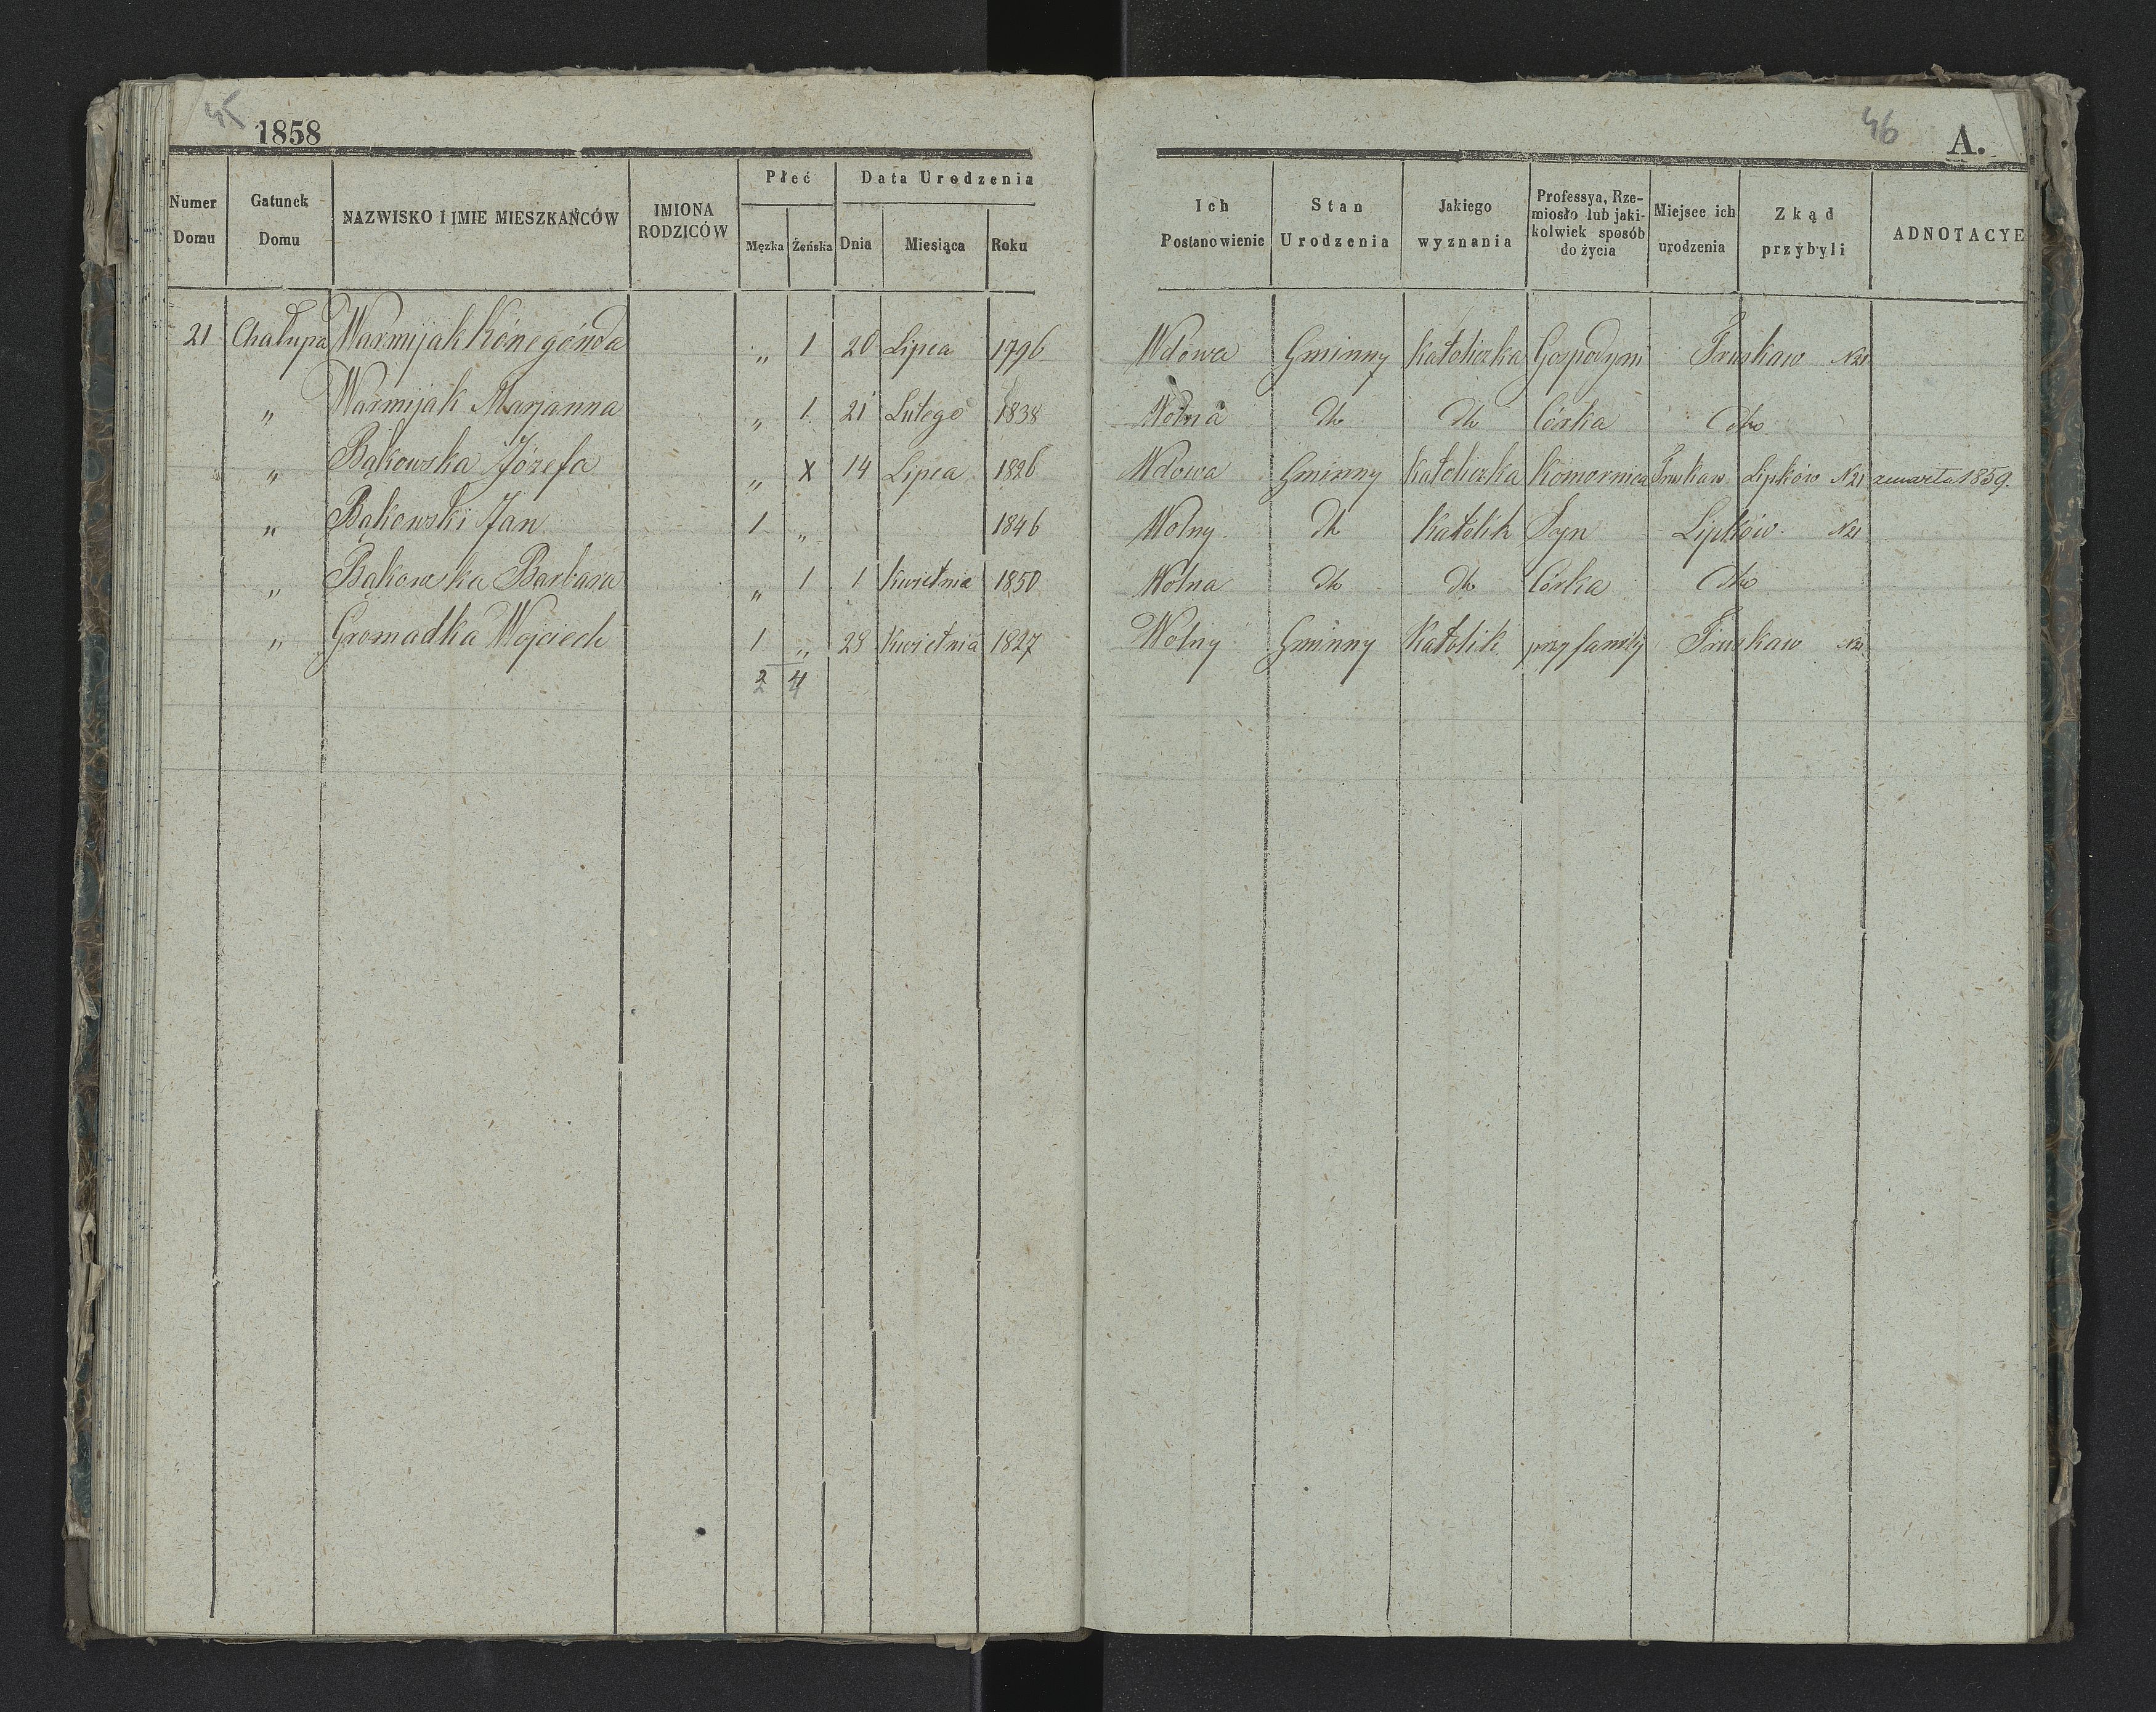 45
1858
46
A.
Numer Domu | Gatunek Domu | NAZWISKO I IMIE MIESZKAŃCÓW | IMIONA RODZICÓW | Płeć Męzka Żeńska | Data Urodzenia Dnia Miesiąca Roku | Ich Postanowienie | Stan Urodzenia | Jakiego wyznania | Professya, Rzemiosło lub jakikolwiek sposób do życia | Miejsce ich urodzenia | Zkąd przybyli | ADNOTACYE
21 Chałupa Warmijak Konegónda „ 1 20 Lipca 1796 Wdowa Gminny Katoliczka Gospodyni Truskaw N21
„ Warmijak Marjanna „ 1 21 Lutego 1838 Wolna Dto Dto Córka Dto
„ Bąkowska Józefa „ X 14 Lipca 1826 Wdowa Gminny Katoliczka Komornica Truskaw Lipków N21 zmarła 1859.
„ Bąkowski Jan 1 „ 1846 Wolny Dto Katolik Syn Lipków N21
„ Bąkowska Barbara „ 1 1 Kwietnia 1850 Wolna Dto Dto Córka Dto
„ Gromadka Wojciech 1 „ 28 Kwietnia 1827 Wolny Gminny Katolik przy familij Truskaw N21
2 4